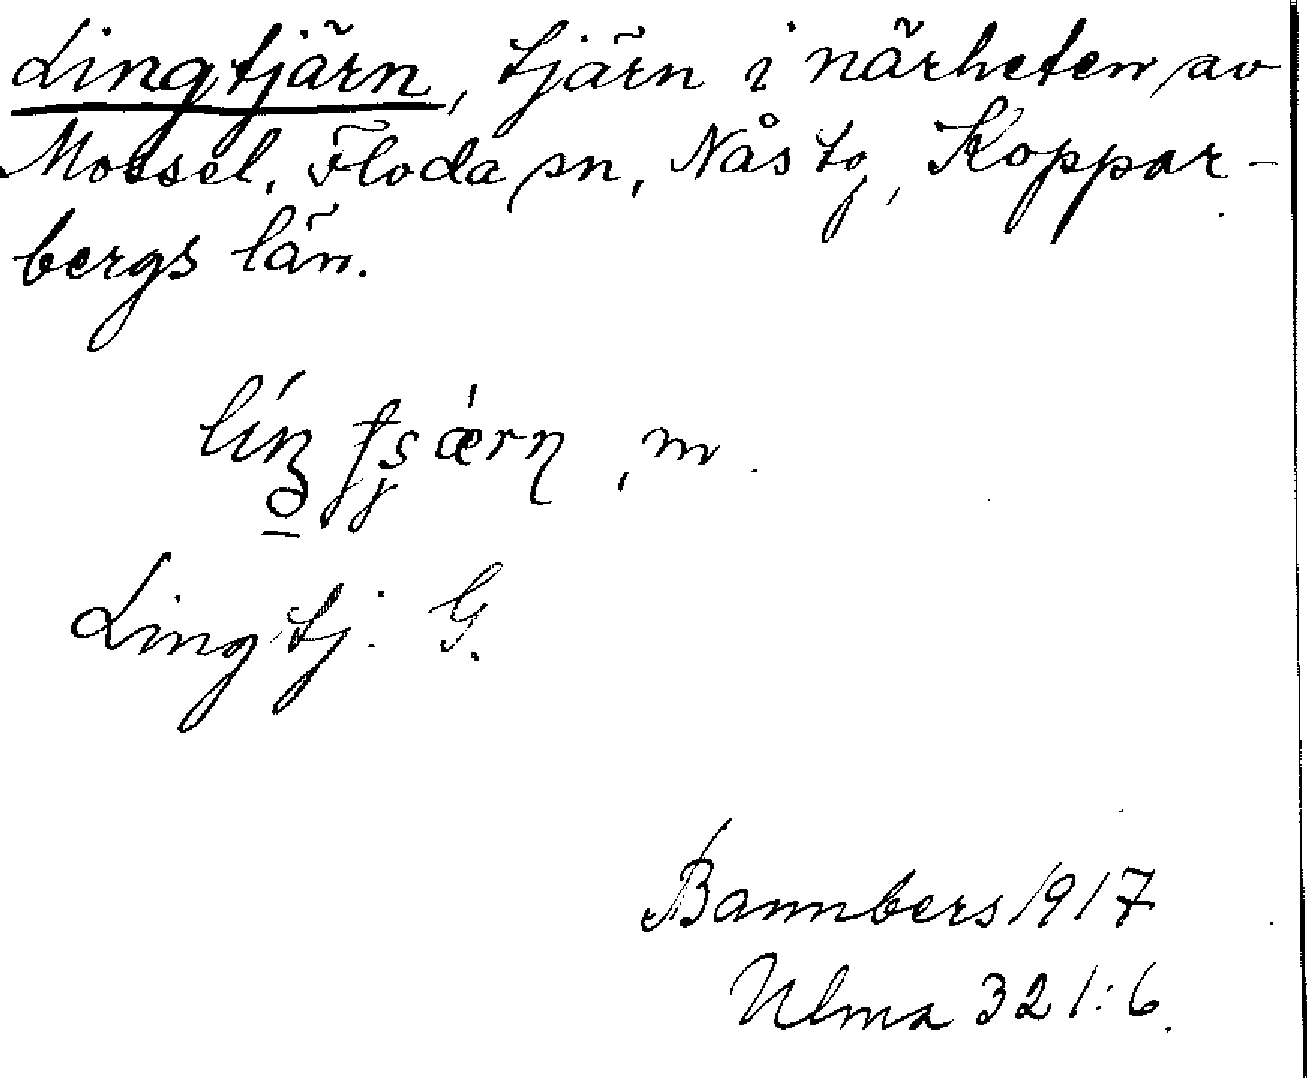 Lingtjärn, tjärn i närheten av
Mossel, Floda sn, Nås tg, Koppar-
bergs län.
, m.
Lingtj. G.
Bannbers 1917
Ulma 321:6.